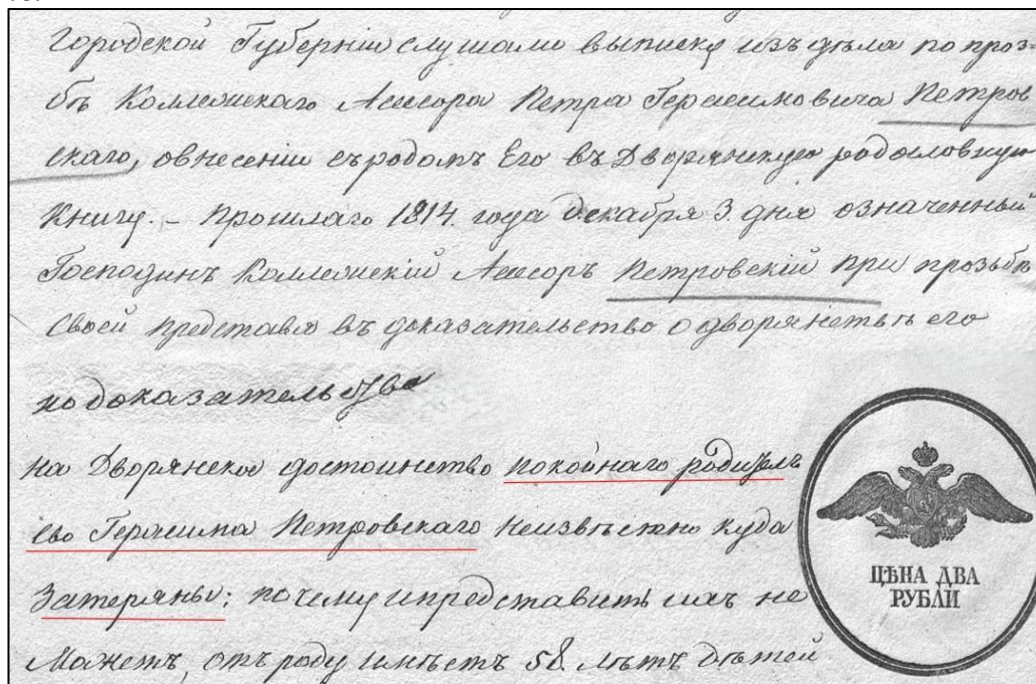 Городской Губерніи слушали выписку изъ дѣла по проз=
бѣ Коллежскаго Ассесора Петра Герасимовича Петров
скаго, овнесеніи съродомъ Его въ Дворянскую родословную
Книгу. – Прошлаго 1814. года Декабря 3. дня означенный
Господинъ Коллежскій Ассесоръ Петровскій при прозьбѣ
Своей представя въ доказательство о дворянствѣ его
но доказательства
на Дворянское достоинство покойнаго родителя
его Герасима Петровскаго неизвѣстно куда
Затеряны; почему и представить ихъ не
Можетъ, отъ роду имѣетъ 58. лѣтъ дѣтей
ЦѢНА ДВА
РУБЛИ